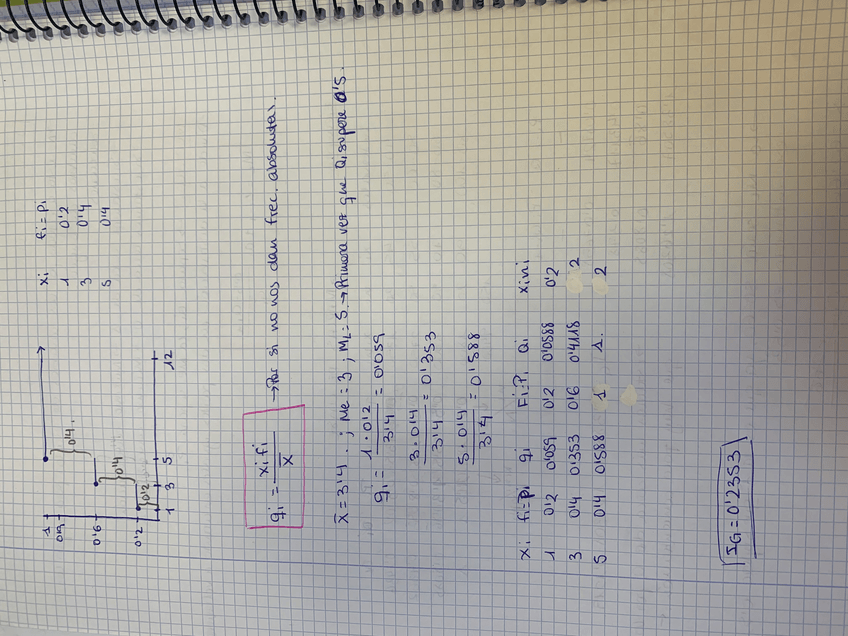 1
0'9
0'6
0'2
0'4
0'4
0'2
1 3 5 12
xi fi=pi
1 0'2
3 0'4
5 0'4
qi = xifi / x̄ → Por si no nos dan frec. absolutas.
x̄ = 3'4 ; Me = 3 ; ML = 5. → Primera vez que Qi supera 0'5.
qi = 1·0'2 / 3'4 = 0'059
3·0'4 / 3'4 = 0'353
5·0'4 / 3'4 = 0'588
xi fi=pi qi Fi=Pi Qi xini
1 0'2 0'059 0'2 0'0588 0'2
3 0'4 0'353 0'6 0'4118 2
5 0'4 0'588 1 1. 2
IG = 0'2353